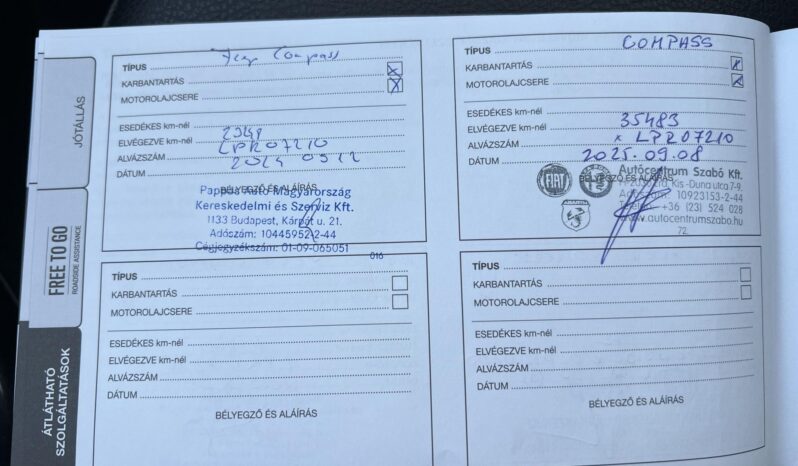 JÓTÁLLÁS
FREE TO GO
ROADSIDE ASSISTANCE
ÁTLÁTHATÓ
SZOLGÁLTATÁSOK
TÍPUS Jeep Compass
KARBANTARTÁS X
MOTOROLAJCSERE X
ESEDÉKES km-nél
ELVÉGEZVE km-nél
ALVÁZSZÁM LPR07210
DÁTUM 2024 09 12
BÉLYEGZŐ ÉS ALÁÍRÁS
Pappas Auto Magyarország
Kereskedelmi és Szerviz Kft.
1133 Budapest, Kárpát u. 21.
Adószám: 10445952-2-44
Cégjegyzékszám: 01-09-065051
016
TÍPUS COMPASS
KARBANTARTÁS X
MOTOROLAJCSERE X
ESEDÉKES km-nél
ELVÉGEZVE km-nél 35483
ALVÁZSZÁM x LPR07210
DÁTUM 2025.09.08
BÉLYEGZŐ ÉS ALÁÍRÁS
FIAT
ABARTH
Autócentrum Szabó Kft.
Kis-Duna u. 7-9.
Adószám: 10923153-2-44
Telefon: +36 (23) 524 028
www.autocentrumszabo.hu
72.
TÍPUS
KARBANTARTÁS
MOTOROLAJCSERE
ESEDÉKES km-nél
ELVÉGEZVE km-nél
ALVÁZSZÁM
DÁTUM
BÉLYEGZŐ ÉS ALÁÍRÁS
TÍPUS
KARBANTARTÁS
MOTOROLAJCSERE
ESEDÉKES km-nél
ELVÉGEZVE km-nél
ALVÁZSZÁM
DÁTUM
BÉLYEGZŐ ÉS ALÁÍRÁS